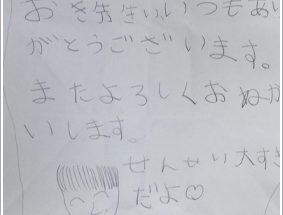 おき先生いいつもあい
がとうございます。
またよろしくおねが
いします。
せんせい大すき
だよ♡